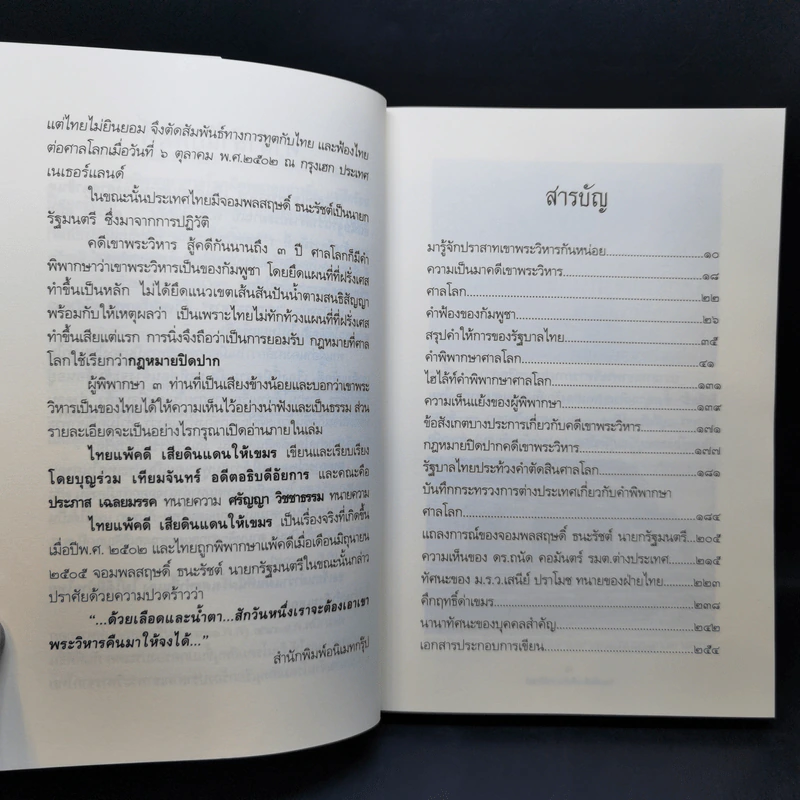 แต่ไทยไม่ยินยอม จึงตัดสัมพันธ์ทางการทูตกับไทย และฟ้องไทย
ต่อศาลโลกเมื่อวันที่ ๖ ตุลาคม พ.ศ.๒๕๐๒ ณ กรุงเฮก ประเทศ
เนเธอร์แลนด์
ในขณะนั้นประเทศไทยมีจอมพลสฤษดิ์ ธนะรัชต์เป็นนายก
รัฐมนตรี ซึ่งมาจากการปฏิวัติ
คดีเขาพระวิหาร สู้คดีกันนานถึง ๓ ปี ศาลโลกก็มีคำ
พิพากษาว่าเขาพระวิหารเป็นของกัมพูชา โดยยึดแผนที่ที่ฝรั่งเศส
ทำขึ้นเป็นหลัก ไม่ได้ยึดแนวเขตเส้นสันปันน้ำตามสนธิสัญญา
พร้อมกับให้เหตุผลว่า เป็นเพราะไทยไม่ทักท้วงแผนที่ที่ฝรั่งเศส
ทำขึ้นเสียแต่แรก การนิ่งจึงถือว่าเป็นการยอมรับ กฎหมายที่ศาล
โลกใช้เรียกว่ากฎหมายปิดปาก
ผู้พิพากษา ๓ ท่านที่เป็นเสียงข้างน้อยและบอกว่าเขาพระ
วิหารเป็นของไทยได้ให้ความเห็นไว้อย่างน่าฟังและเป็นธรรม ส่วน
รายละเอียดจะเป็นอย่างไรกรุณาเปิดอ่านภายในเล่ม
ไทยแพ้คดี เสียดินแดนให้เขมร เขียนและเรียบเรียง
โดยบุญร่วม เทียมจันทร์ อดีตอธิบดีอัยการ และคณะคือ
ประภาส เฉลยมรรค ทนายความ ศรัญญา วิชชาธรรม ทนายความ
ไทยแพ้คดี เสียดินแดนให้เขมร เป็นเรื่องจริงที่เกิดขึ้น
เมื่อปีพ.ศ. ๒๕๐๒ และไทยถูกพิพากษาแพ้คดีเมื่อเดือนมิถุนายน
๒๕๐๕ จอมพลสฤษดิ์ ธนะรัชต์ นายกรัฐมนตรีในขณะนั้นกล่าว
ปราศัยด้วยความปวดร้าวว่า
"...ด้วยเลือดและน้ำตา...สักวันหนึ่งเราจะต้องเอาเขา
พระวิหารคืนมาให้จงได้..."
สำนักพิมพ์อนิเมทกรุ๊ป
สารบัญ
มารู้จักปราสาทเขาพระวิหารกันหน่อย...๑๐
ความเป็นมาคดีเขาพระวิหาร...๑๘
ศาลโลก...๒๒
คำฟ้องของกัมพูชา...๒๖
สรุปคำให้การของรัฐบาลไทย...๓๕
คำพิพากษาศาลโลก...๔๑
ไฮไล้ท์คำพิพากษาศาลโลก...๑๓๑
ความเห็นแย้งของผู้พิพากษา...๑๓๙
ข้อสังเกตบางประการเกี่ยวกับคดีเขาพระวิหาร...๑๗๑
กฎหมายปิดปากคดีเขาพระวิหาร...๑๗๗
รัฐบาลไทยประท้วงคำตัดสินศาลโลก...๑๘๑
บันทึกกระทรวงการต่างประเทศเกี่ยวกับคำพิพากษา
ศาลโลก...๑๘๔
แถลงการณ์ของจอมพลสฤษดิ์ ธนะรัชต์ นายกรัฐมนตรี...๒๐๕
ความเห็นของ ดร.ถนัด คอมันตร์ รมต.ต่างประเทศ...๒๑๕
ทัศนะของ ม.ร.ว.เสนีย์ ปราโมช ทนายของฝ่ายไทย...๒๒๓
คึกฤทธิ์ด่าเขมร...๒๓๘
นานาทัศนะของบุคคลสำคัญ...๒๔๒
เอกสารประกอบการเขียน...๒๕๔